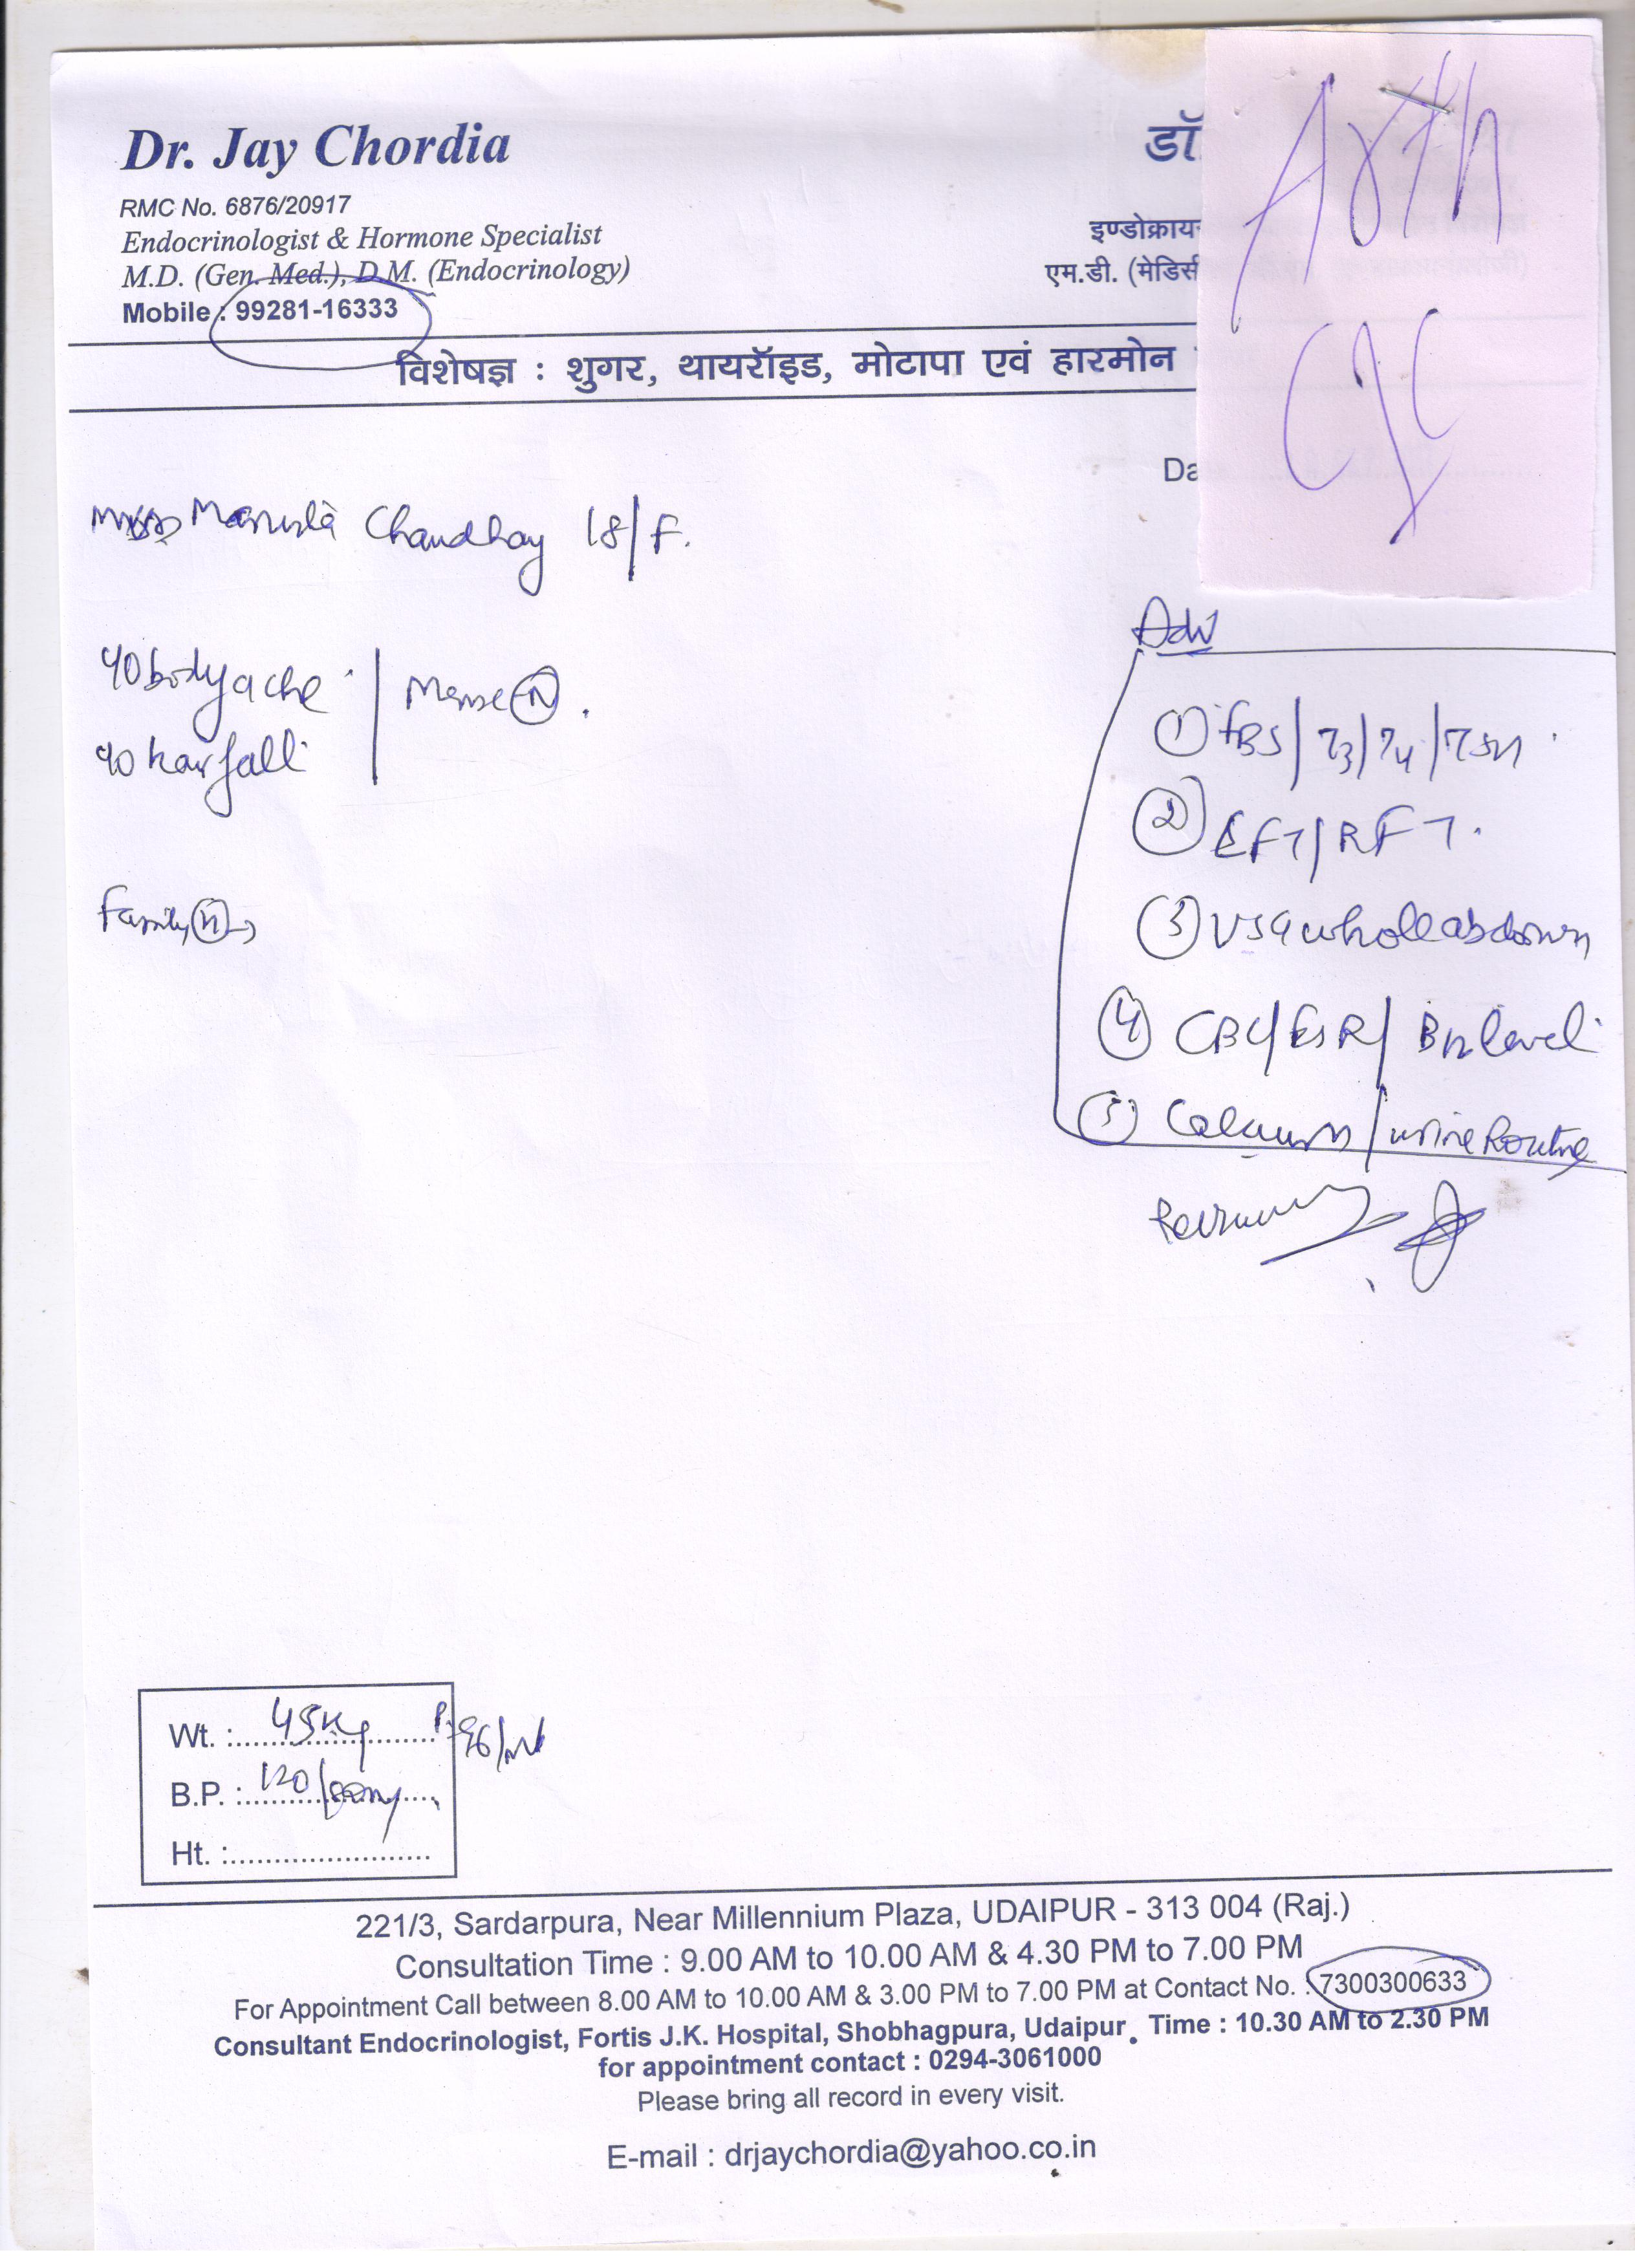 Dr. Jay Chordia
RMC No. 6876/20917
Endocrinologist & Hormone Specialist
M.D. (Gen. Med.), D.M. (Endocrinology)
Mobile : 99281-16333
डॉ
इण्डोक्राय
एम.डी. (मेडिसी
विशेषज्ञ : शुगर, थायरॉइड, मोटापा एवं हारमोन
Arth
Da
Chaudhay 18/F.
bodyache
Mense (N).
hair fall
Family (N)
Adv
① FBS/T3/T4/TSH
② LFT/RFT.
③ USG whole abdomen
④ CBC/ESR/B12 level
⑤ Calcium/urine Routine
Wt. : 45kg P- 96/mt
B.P. : 120/80
Ht. :
221/3, Sardarpura, Near Millennium Plaza, UDAIPUR - 313 004 (Raj.)
Consultation Time : 9.00 AM to 10.00 AM & 4.30 PM to 7.00 PM
For Appointment Call between 8.00 AM to 10.00 AM & 3.00 PM to 7.00 PM at Contact No. : 7300300633
Consultant Endocrinologist, Fortis J.K. Hospital, Shobhagpura, Udaipur. Time : 10.30 AM to 2.30 PM
for appointment contact : 0294-3061000
Please bring all record in every visit.
E-mail : drjaychordia@yahoo.co.in